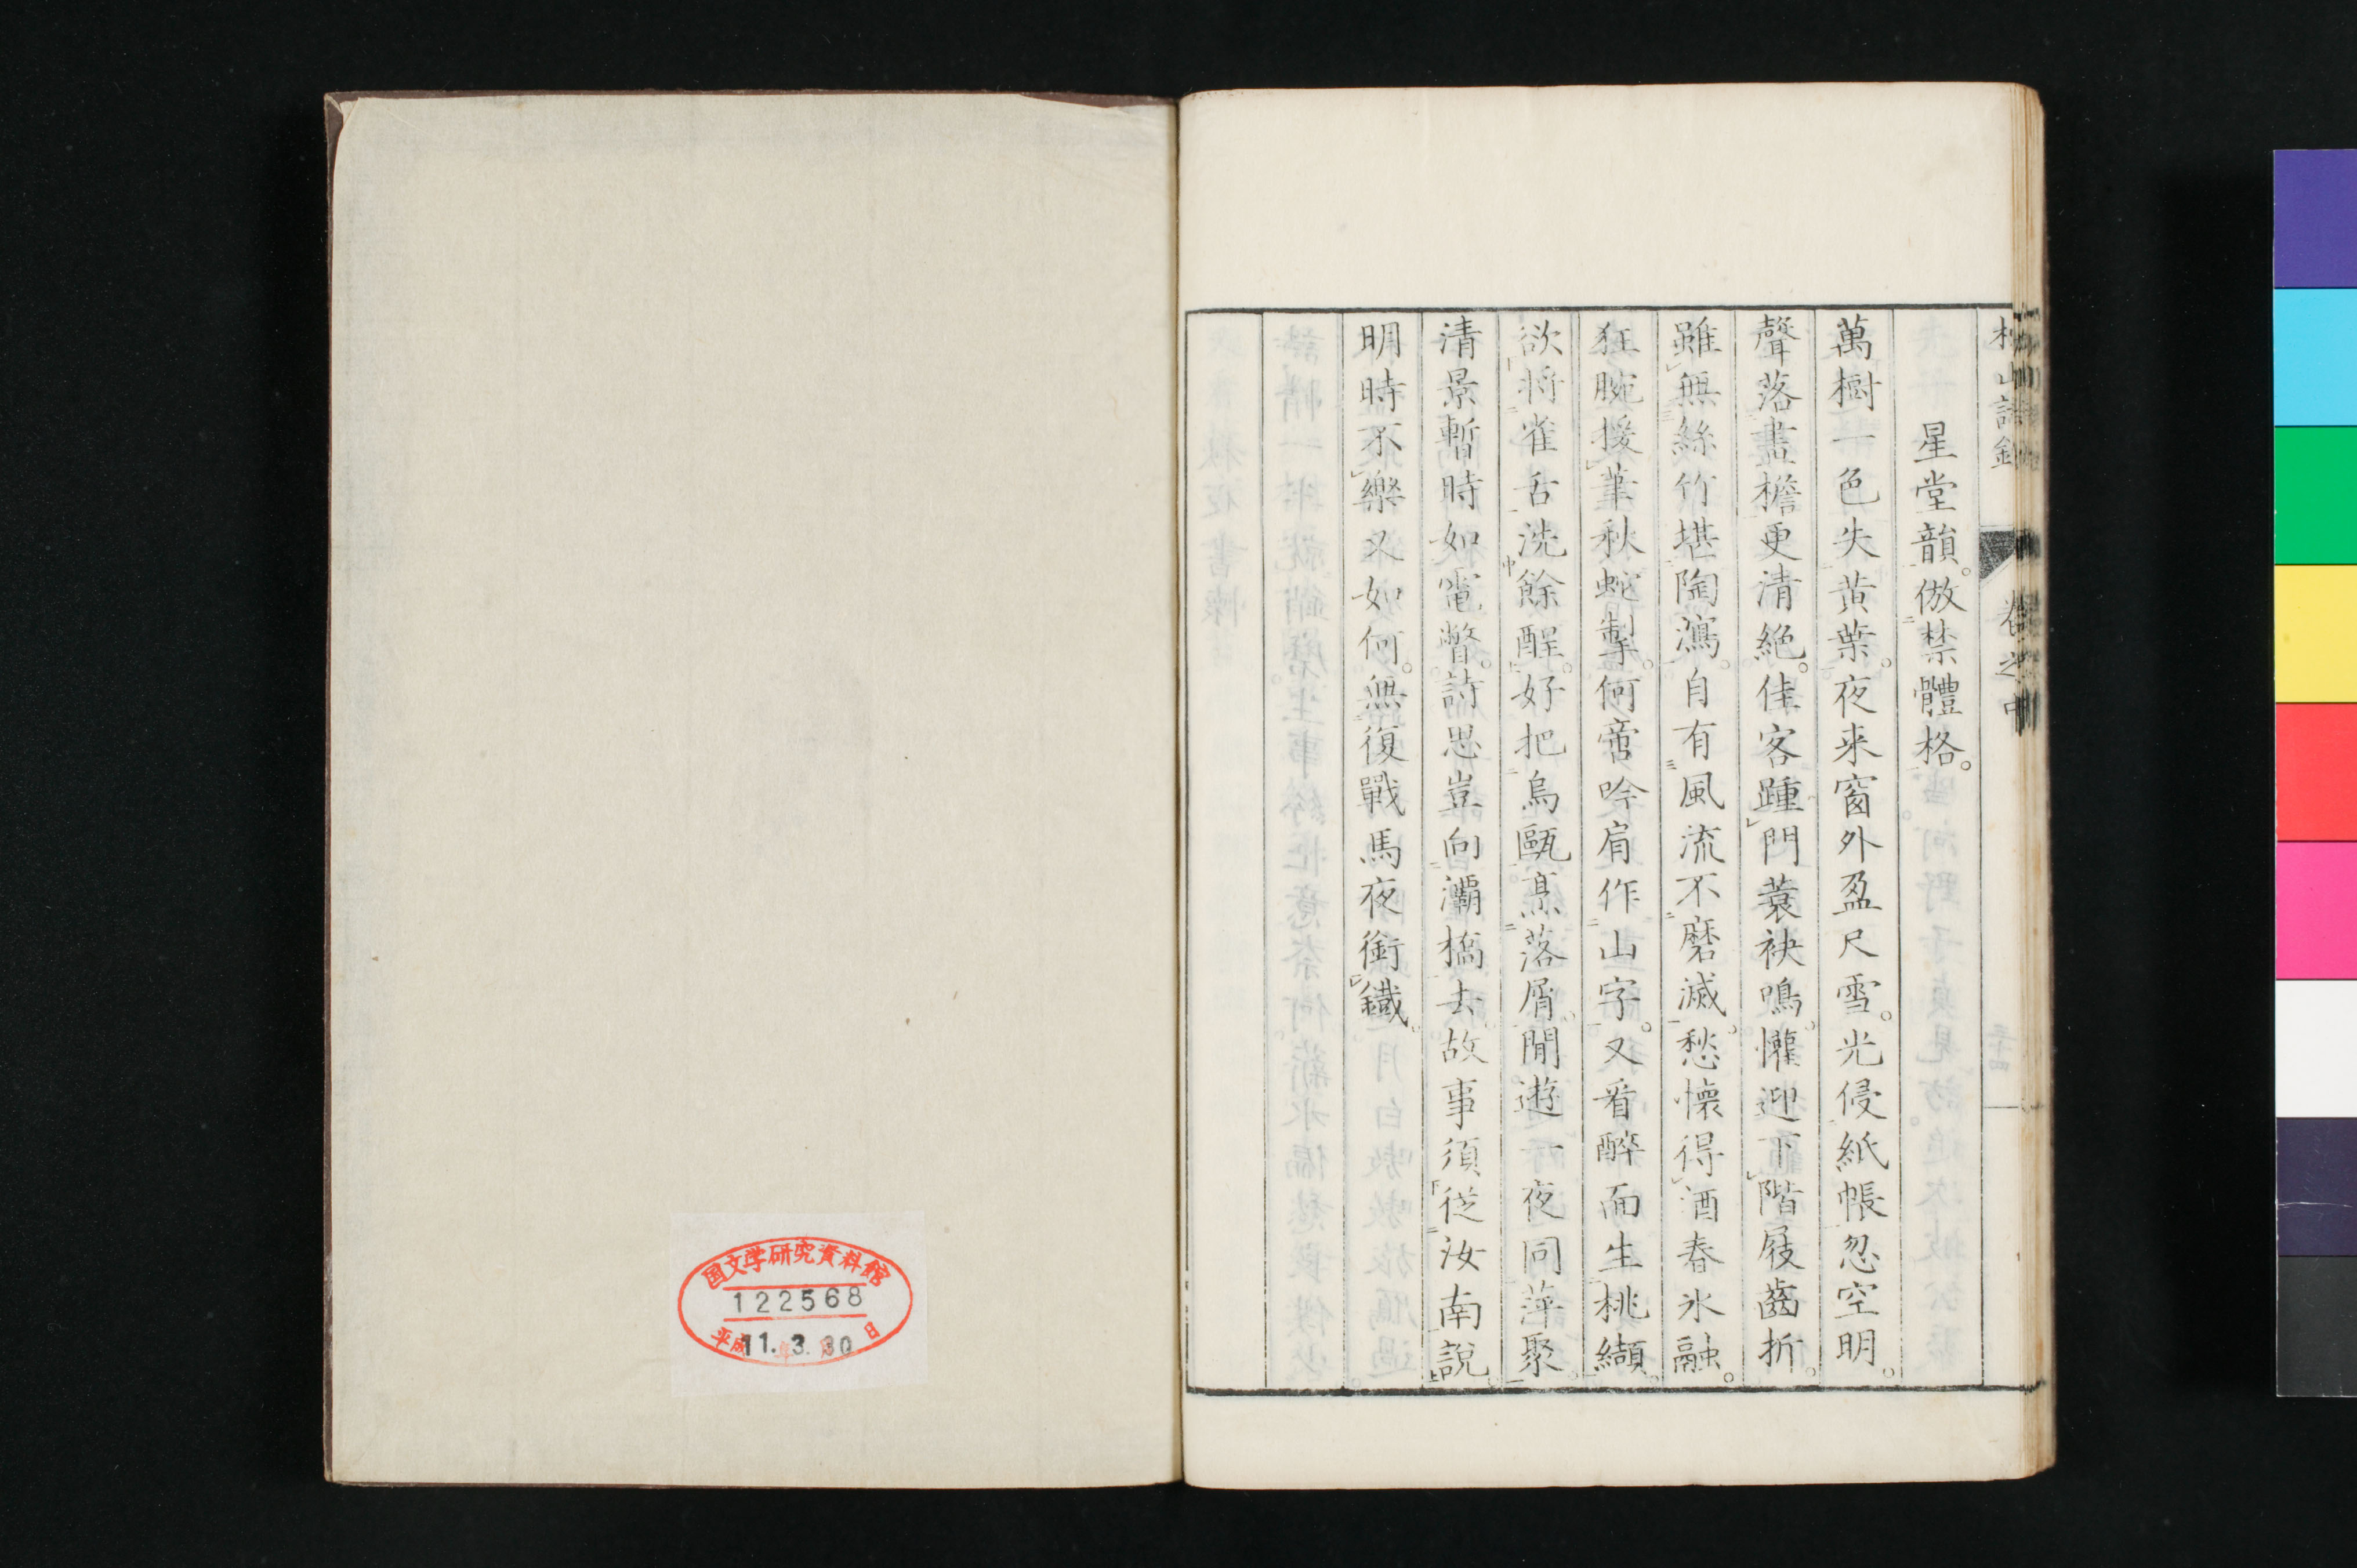 山詩鈔 卷之中
星堂韻。倣禁體格。
萬樹一色失黃葉。夜来窗外盈尺雪。光侵紙帳忽空明。
聲落畫檐更清絶。佳客踵門蓑袂鳴。懽迎下階屐齒折。
雖無絲竹堪陶瀉。自有風流不磨滅。愁懷得酒春氷融。
狂腕援筆秋蛇掣。何啻吟肩作山字。又看醉面生桃纈。
欲將雀舌洗餘酲。好把烏甌烹落屑。閒遊一夜同萍聚。
清景暫時如電瞥。詩思豈向灞橋去。故事須從汝南說。
明時不樂又如何。無復戰馬夜銜鐵。
国文学研究資料館
122568
平成11.3.30